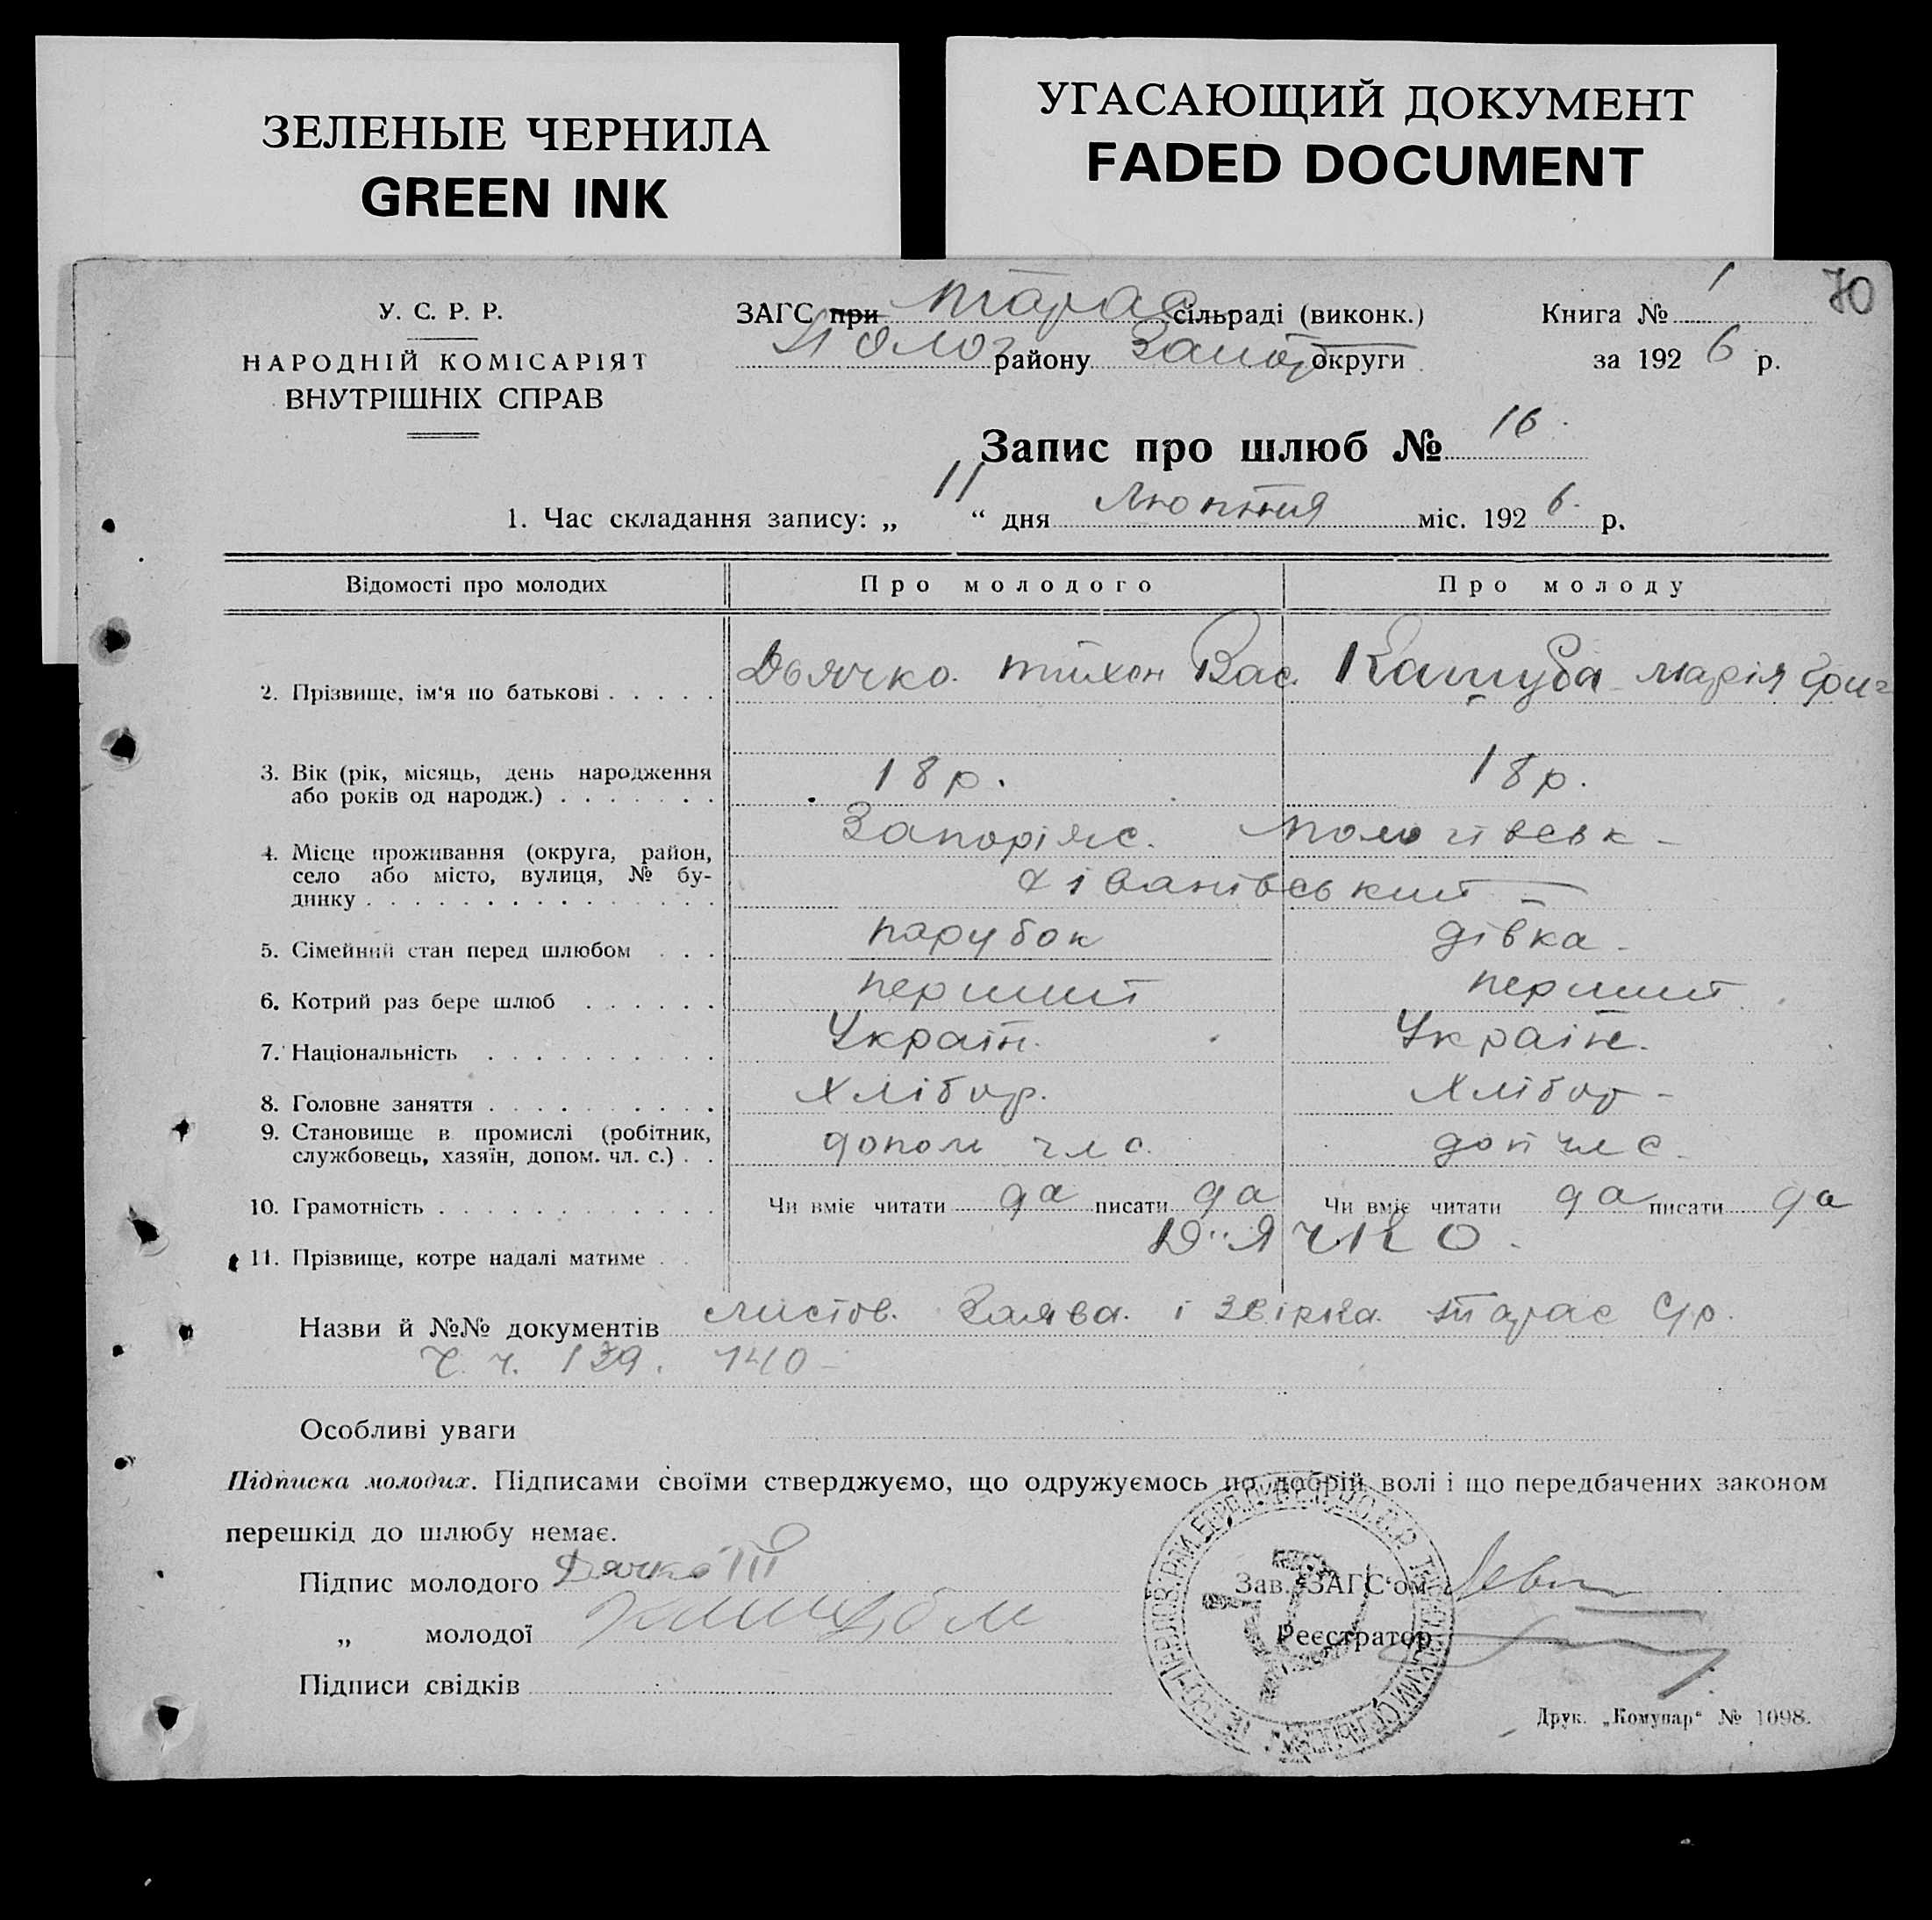 ЗЕЛЕНЫЕ ЧЕРНИЛА
GREEN INK
УГАСАЮЩИЙ ДОКУМЕНТ
FADED DOCUMENT
70
У. С. Р. Р.
НАРОДНІЙ КОМІСАРІЯТ
ВНУТРІШНІХ СПРАВ
ЗАГС при Тарас сільраді (виконк.)
Полог району Запор округи
Книга № 1
за 1926 р.
Запис про шлюб № 16
1. Час складання запису: „ 11 “ дня Лютня міс. 1926 р.
Відомості про молодих Про молодого Про молоду
2. Прізвище, ім‘я по батькові Дьячко Тихон Вас. Кашуба Марія Григ
3. Вік (рік, місяць, день народження
або років од народж.) 18 р. 18 р.
4. Місце проживання (округа, район,
село або місто, вулиця, № бу-
динку
Запоріяс. Пологівськ
х Іванівський
5. Сімейний стан перед шлюбом парубок дівка
6. Котрий раз бере шлюб перший перший
7. Національність Україн. Україн.
8. Головне заняття Хлібор. Хлібор
9. Становище в промислі (робітник,
службовець, хазяїн, допом. чл. с.) допом чл с. доп чл с.
10. Грамотність Чи вміє читати да писати да Чи вміє читати да писати да
11. Прізвище, котре надалі матиме Д"ячко.
Назви й №№ документів листов. Заява і звірка Тарас с/р.
ч. 139. 140
Особливі уваги
Підписка молодих. Підписами своїми стверджуємо, що одружуємось по добрій волі і що передбачених законом
перешкід до шлюбу немає.
Підпис молодого Дячко
Зав. ЗАГС‘ом
„ молодої
Реєстратор
Підписи свідків
Друк. „Комунар“ № 1098.